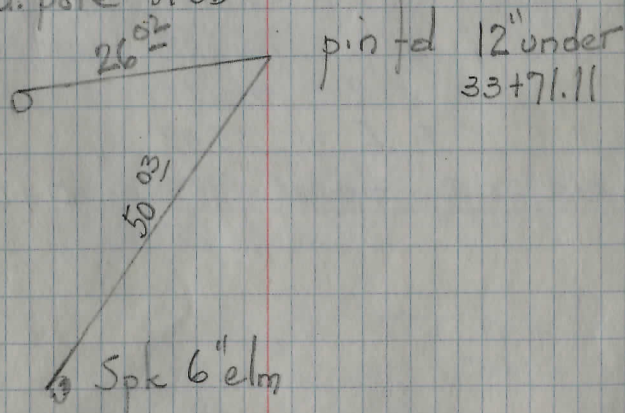 pole
26 02 pin fd 12" under
33+71.11
50 03/
Spk 6" elm